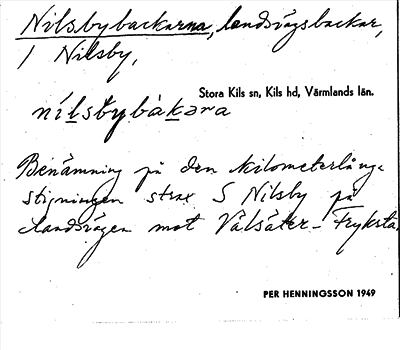 Nilsbybackarna, landsvägsbackar,
i Nilsby,
Stora Kils sn, Kils hd, Värmlands län.
nilstybàkara
Benämning på den kilometerlånga
stigningen strax S Nilsby på
landsvägen mot Vålsäter-Fryksta.
PER HENNINGSSON 1949